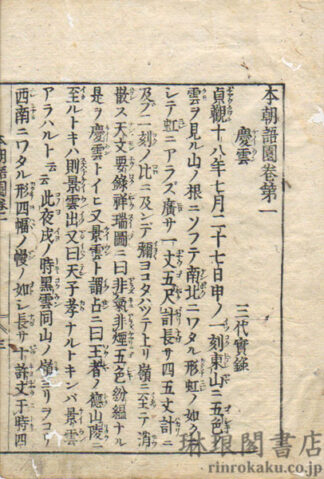 本朝語園卷第一
慶雲
三代實錄
貞觀十八年七月二十七日申ノ一刻東山ニ五色ノ
雲ヲ見ル山ノ根ニソフテ南北ニワタル形虹ノ如クニ
シテ虹ニアラズ廣サ一丈五尺計長サ四五丈計ニ
及ブ二刻ノ比ニ及ンデ彌ヨコタハツテ上リ嶺ニ至テ消
散ス天文要錄祥瑞圖ニ曰非氣非煙五色紛緼ナル
是ヲ慶雲トイヒ又景雲ト謂占ニ曰王者ノ德山陵ニ
至ルトキハ則景雲出又曰天子孝ナルトキンバ景雲
アラハルト云云此夜戌ノ時黑雲同山ノ嶺ヨリヲコリ
西南ニワタル形四幅ノ幔ノ如シ長サ十許丈于時四
本朝語園卷一
琳琅閣書店
rinrokaku.co.jp